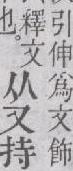 又引伸為文飾
也。釋文从又持